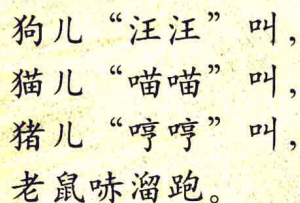 狗儿“汪汪”叫，
猫儿“喵喵”叫，
猪儿“哼哼”叫，
老鼠哧溜跑。